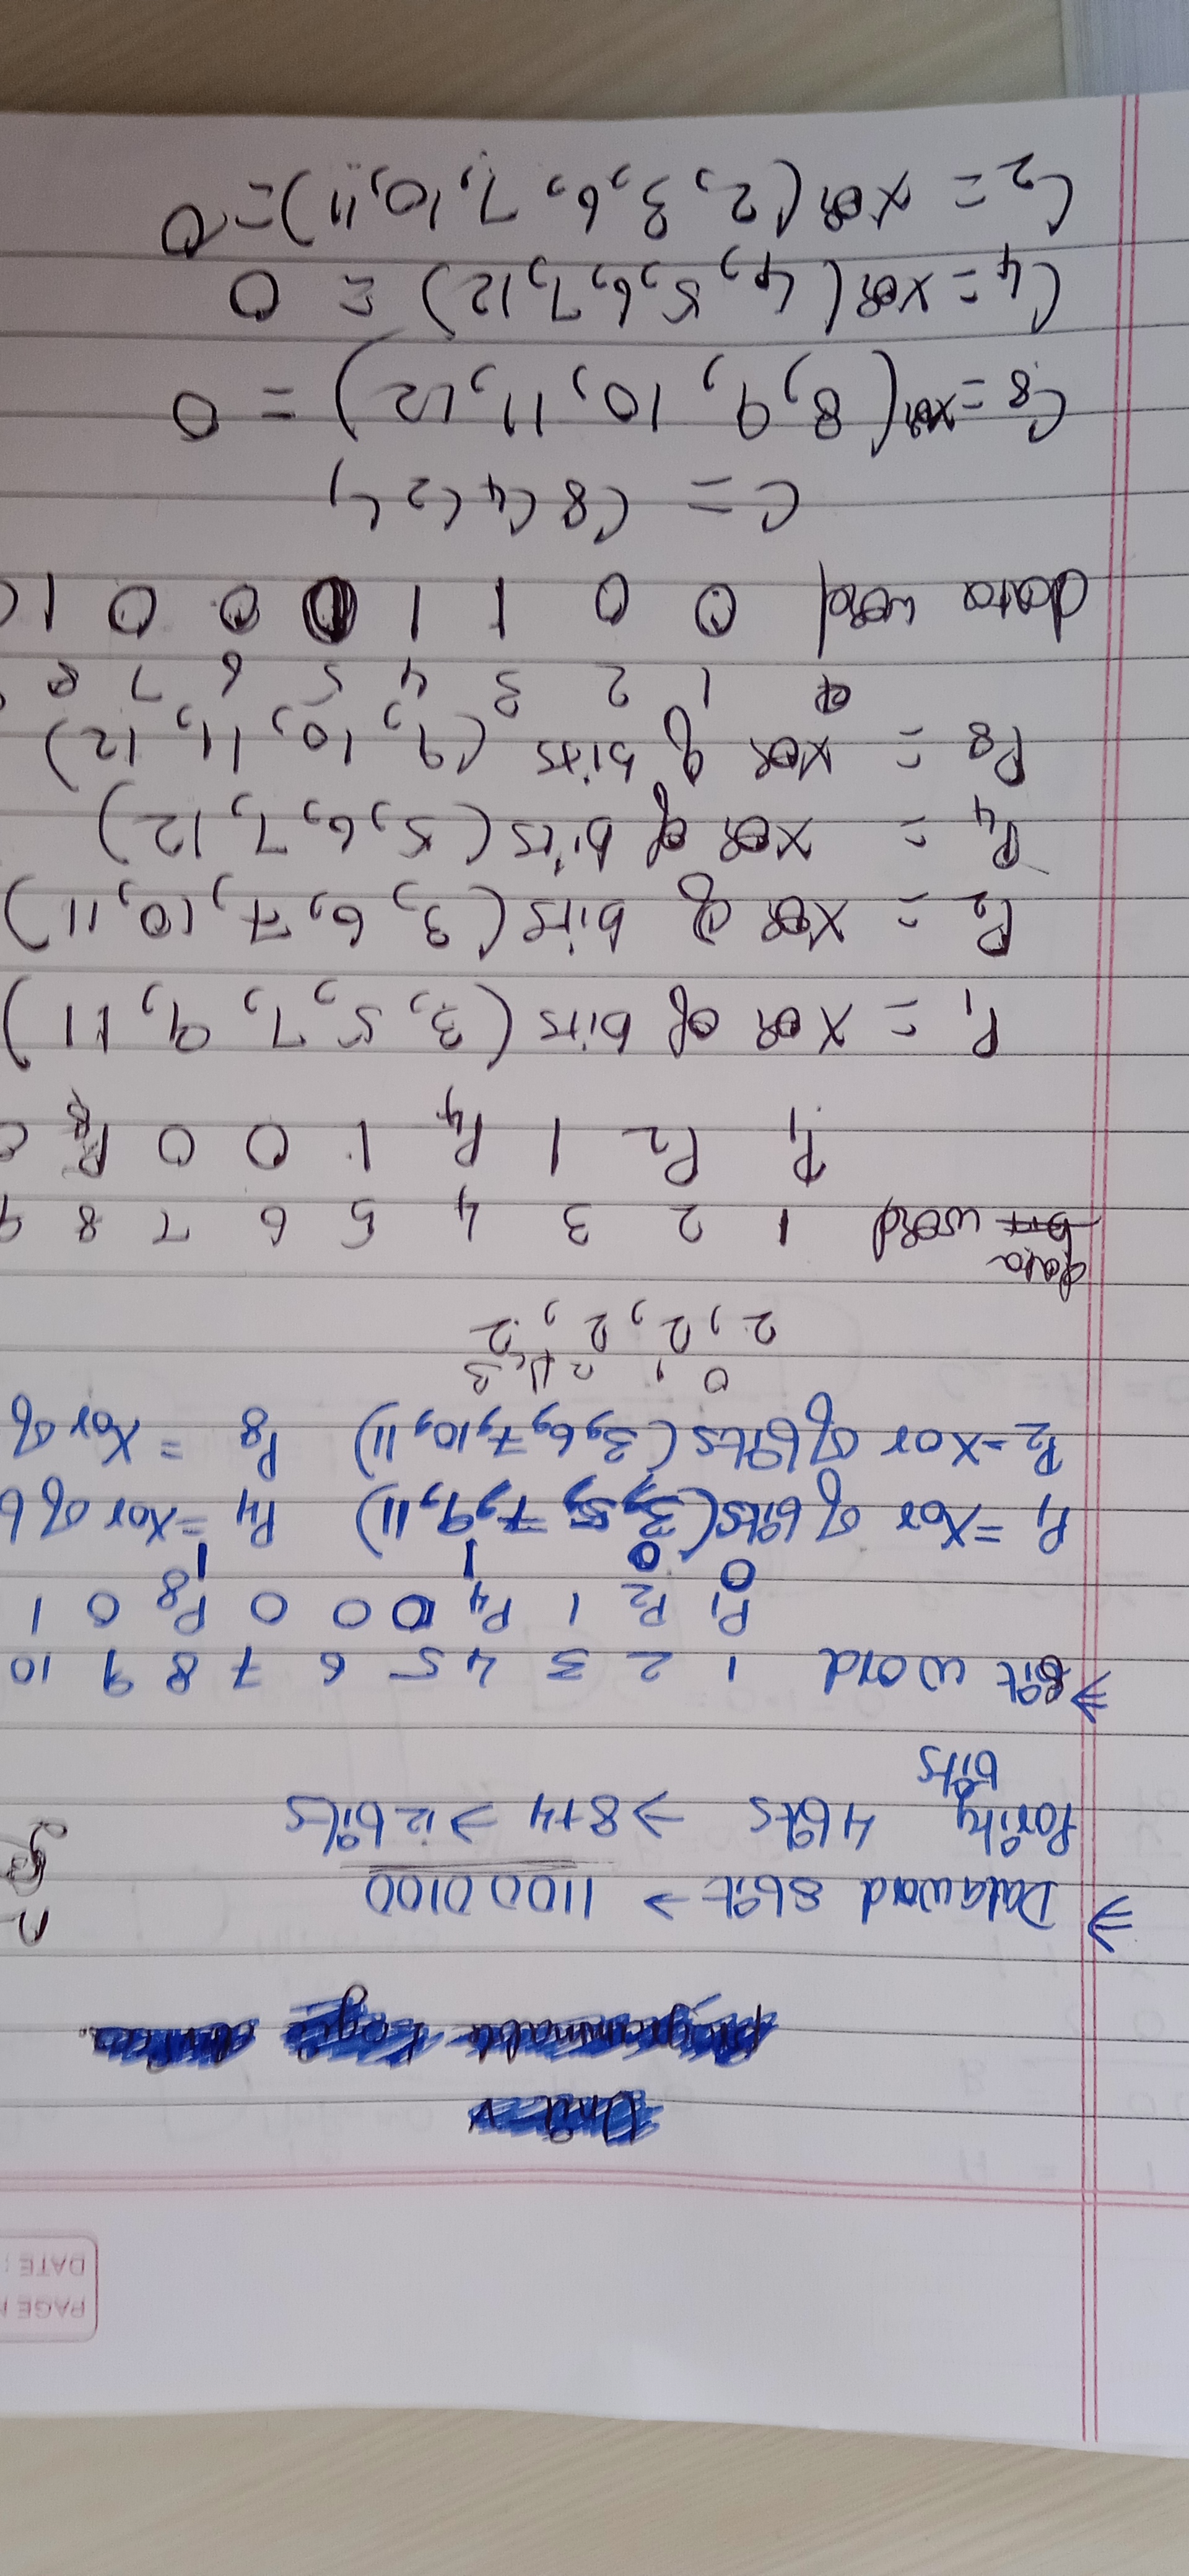 PAGE
DATE:
⇒ Dataword 8bit → 11000100
Parity 4bits → 8+4 → 12 bits
bits
⇒ Bit word 1 2 3 4 5 6 7 8 9 10
P1 P2 1 P4 0 0 0 P8 0 1
0 0 1 1
P1 = Xor of bits (3,5,7,9,11) P4 = Xor of b
P2 = Xor of bits (3,6,7,10,11) P8 = Xor of
0 1 2 3
2, 2, 2, 2
data
word 1 2 3 4 5 6 7 8 9
P1 P2 1 P4 1 0 0 P8
P1 = XOR of bits (3, 5, 7, 9, 11)
P2 = XOR of bits (3, 6, 7, 10, 11)
P4 = XOR of bits (5, 6, 7, 12)
P8 = XOR of bits (9, 10, 11, 12)
1 2 3 4 5 6 7 8
data word 0 0 1 1 0 0 0 1
C = C8 C4 C2 C1
C8 = XOR (8, 9, 10, 11, 12) = 0
C4 = XOR (4, 5, 6, 7, 12) = 0
C2 = XOR (2, 3, 6, 7, 10, 11) = 0